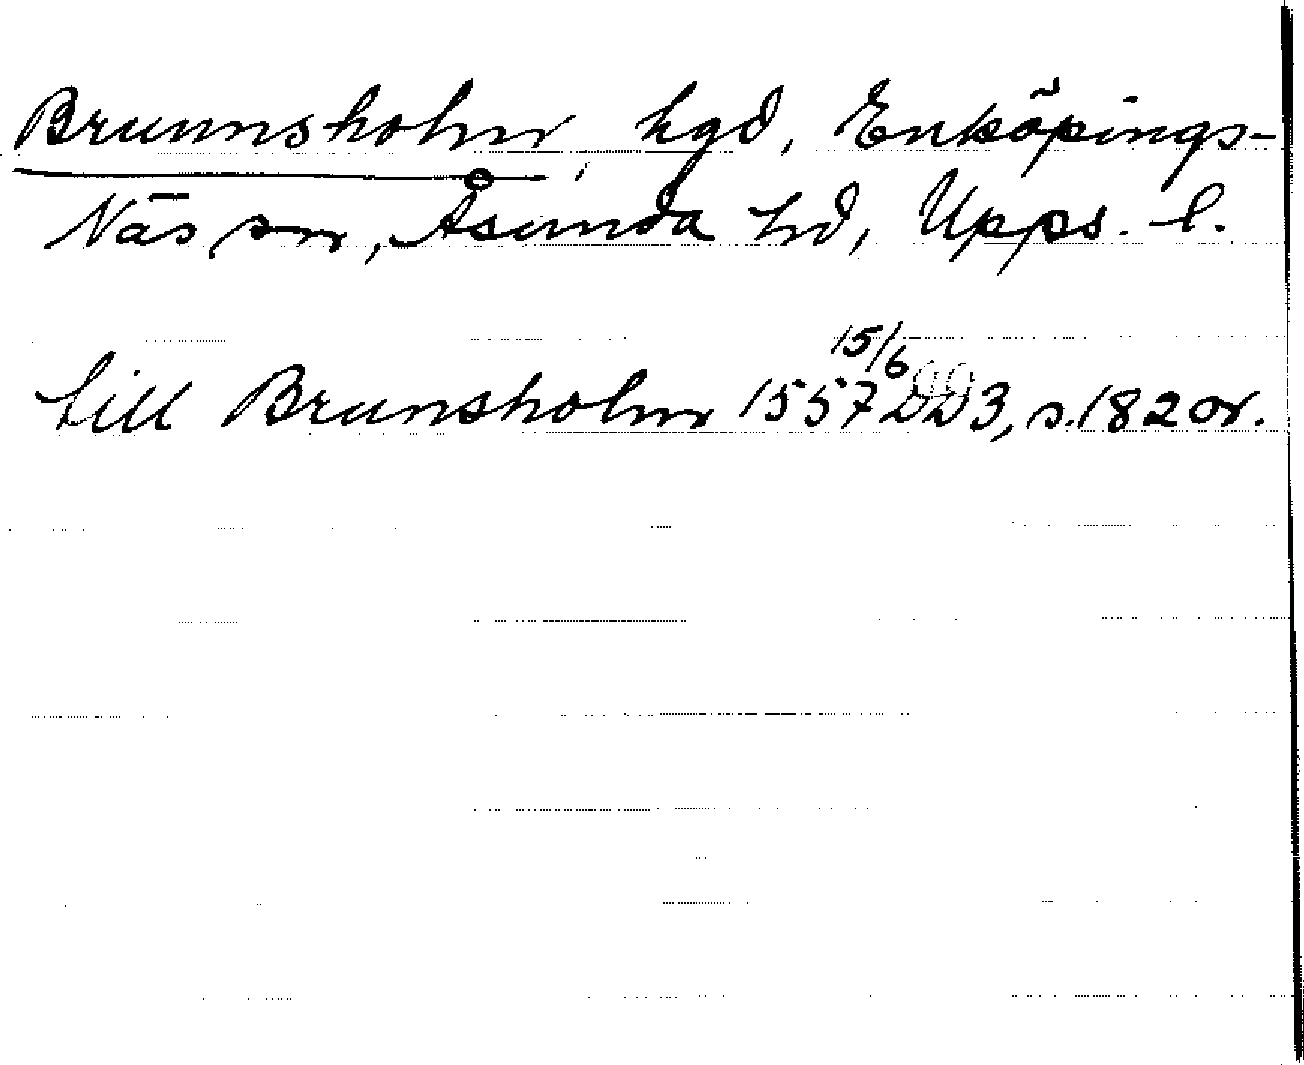 Brunnsholm, hgd, Enköpings-
Näs sn, Åsunda hd, Upps. l.
till Brunsholm 1557 15/6 DD3, s. 182 or.